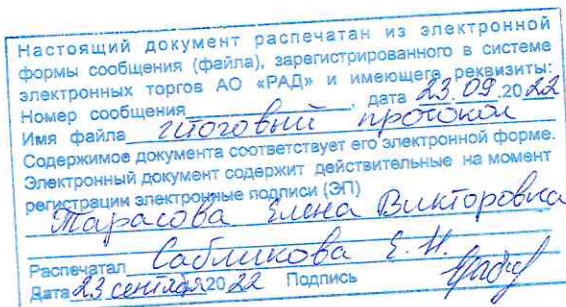 Настоящий документ распечатан из электронной
формы сообщения (файла), зарегистрированного в системе
электронных торгов АО «РАД» и имеющего реквизиты:
Номер сообщения , дата 23.09.2022
Имя файла итоговый протокол
Содержимое документа соответствует его электронной форме.
Электронный документ содержит действительные на момент
регистрации электронные подписи (ЭП)
Тарасова Елена Викторовна
Распечатал Сабликова Е. Н.
Дата 23 сентября 2022 Подпись